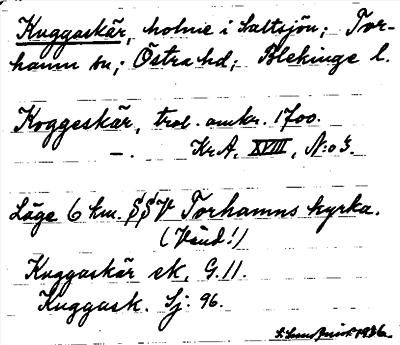 Kuggaskär, holme i Saltsjön; Tor-
hamn sn; Östra hd; Blekinge l.
Koggeskär, trol. omkr. 1700.
—„— KrA, XVIII, N:o 3.
Läge 6 km. SSV Torhamns kyrka.
(Vänd!)
Kuggaskär ek. G. 11.
Kuggask. Sj: 96.
1936